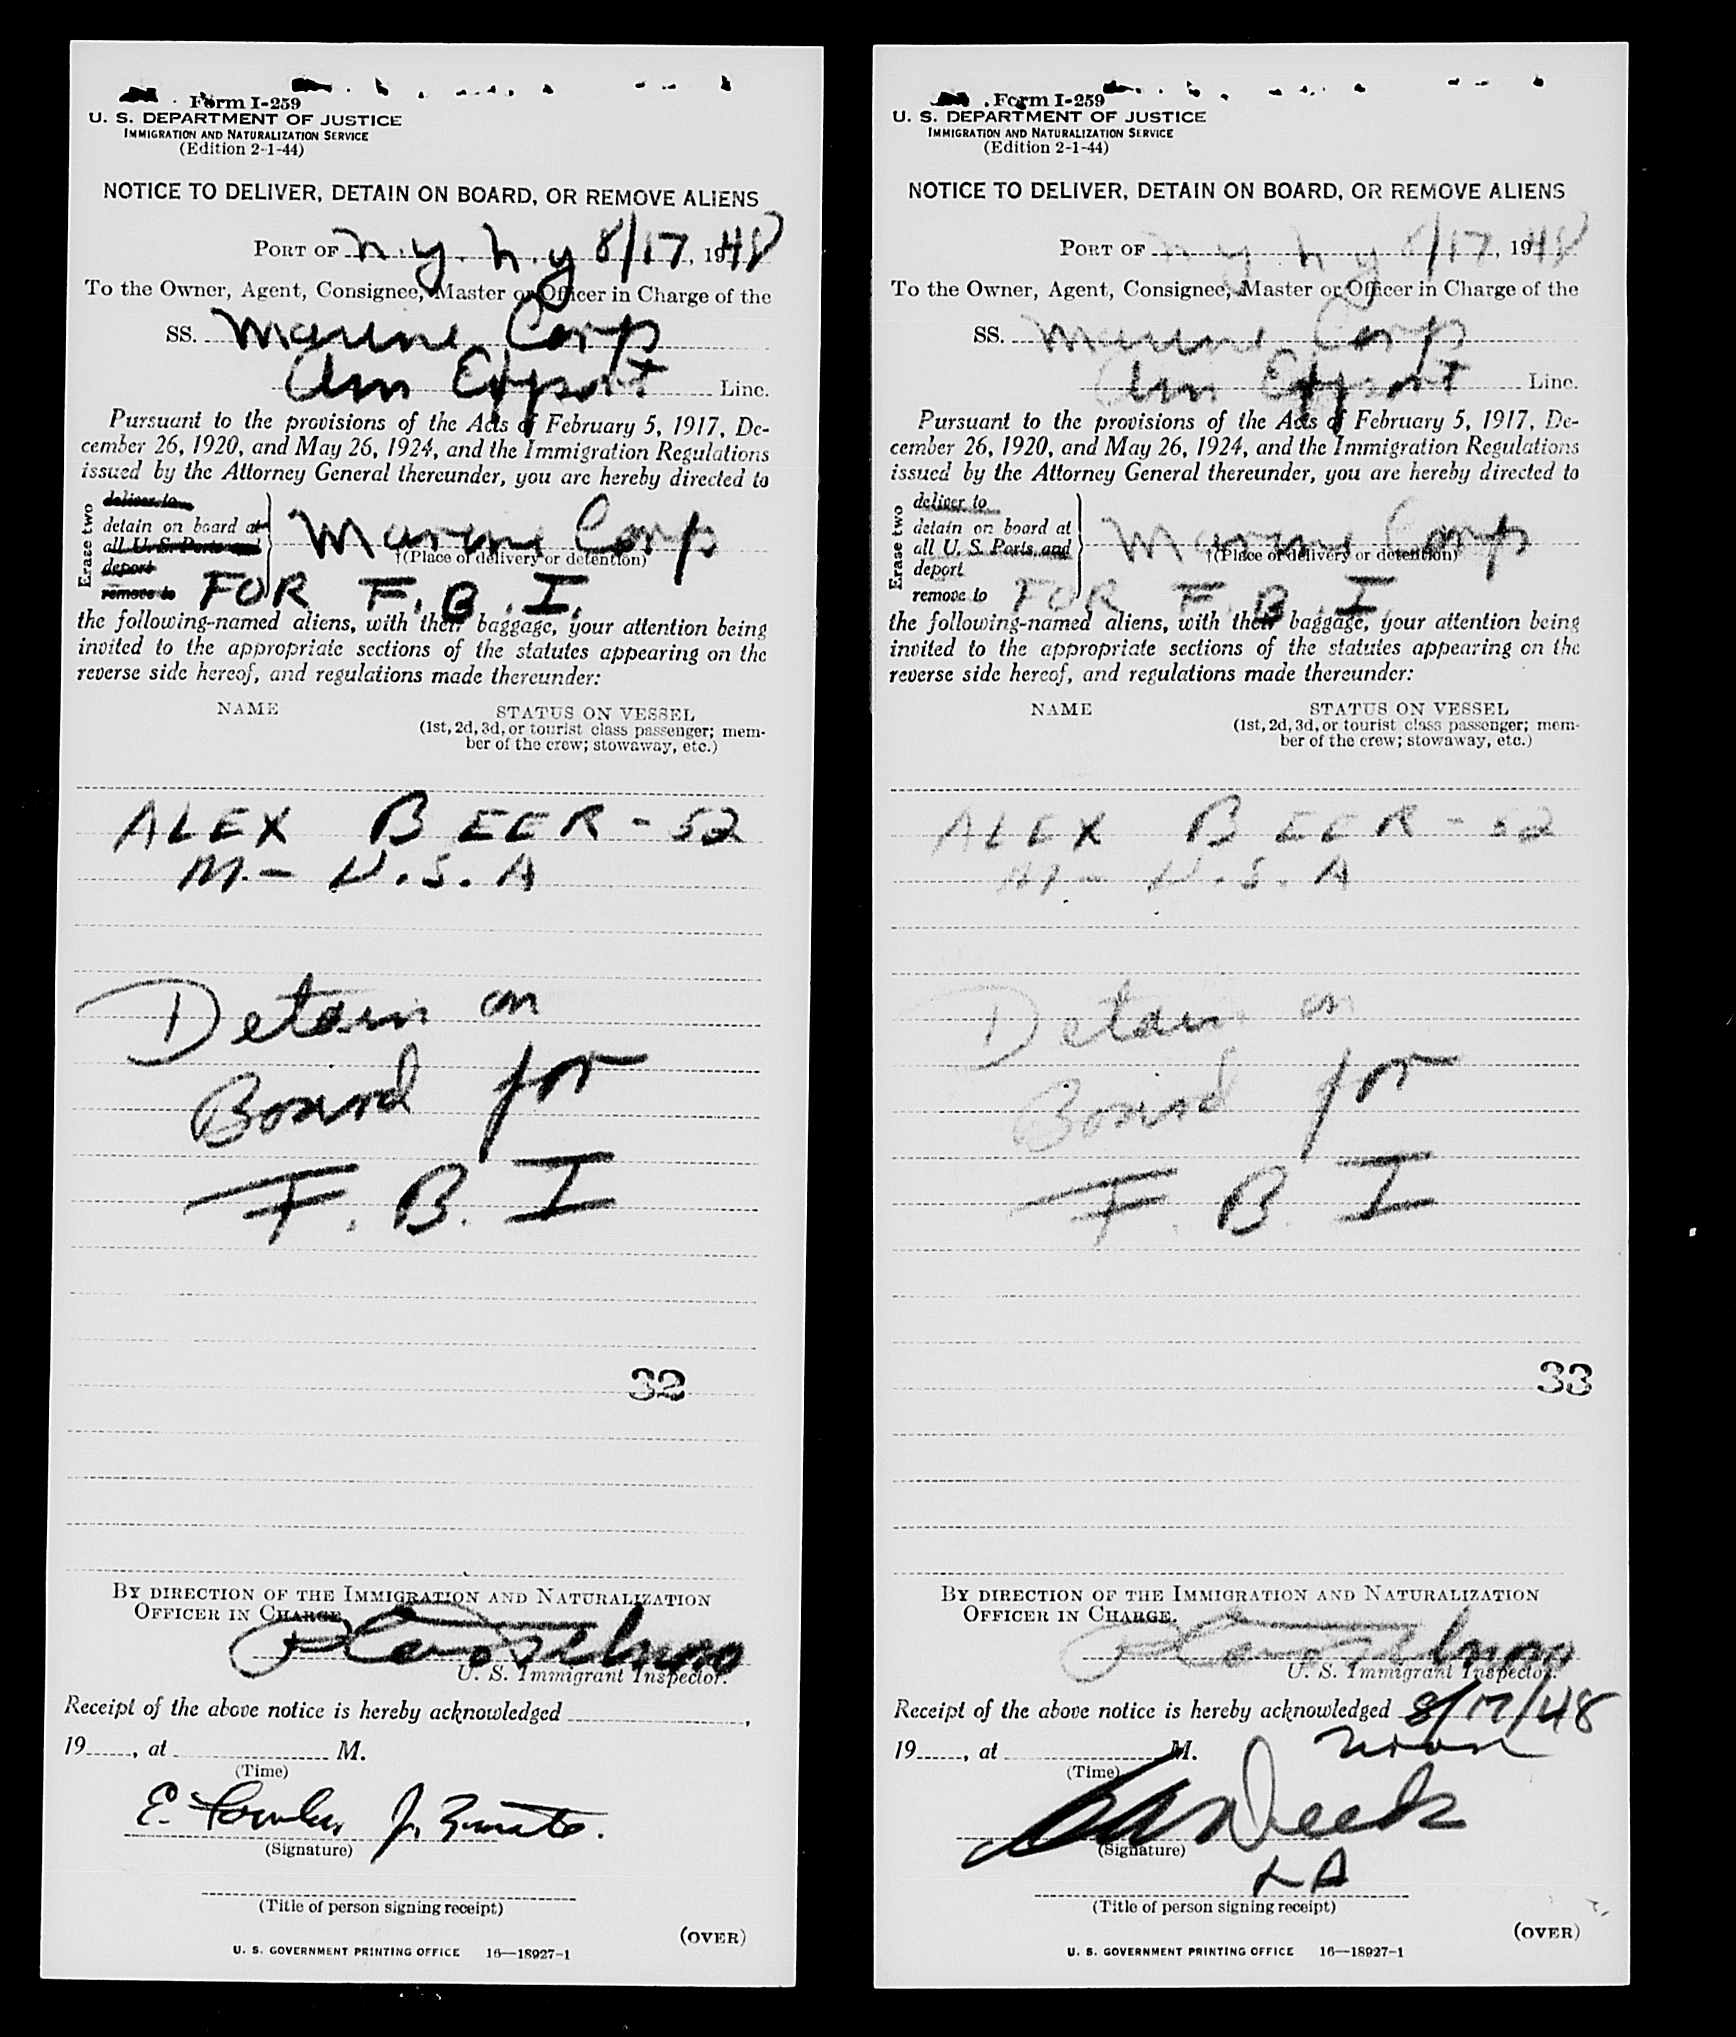 Form I-259
U. S. DEPARTMENT OF JUSTICE
IMMIGRATION AND NATURALIZATION SERVICE
(Edition 2-1-44)
NOTICE TO DELIVER, DETAIN ON BOARD, OR REMOVE ALIENS
PORT OF N.Y. N.Y 8/17, 1948
To the Owner, Agent, Consignee, Master or Officer in Charge of the
SS. Marine Carp
Am Export Line.
Pursuant to the provisions of the Acts of February 5, 1917, De-
cember 26, 1920, and May 26, 1924, and the Immigration Regulations
issued by the Attorney General thereunder, you are hereby directed to
Erase two
deliver to
detain on board at
all U. S. Ports and
deport
remove to
Marine Carp
†(Place of delivery or detention)
FOR F.B.I.
the following-named aliens, with their baggage, your attention being
invited to the appropriate sections of the statutes appearing on the
reverse side hereof, and regulations made thereunder:
NAME STATUS ON VESSEL
(1st, 2d, 3d, or tourist class passenger; mem-
ber of the crew; stowaway, etc.)
ALEX BEER - 52
M - U.S.A
Detain on
Board for
F.B.I
32
BY DIRECTION OF THE IMMIGRATION AND NATURALIZATION
OFFICER IN CHARGE.
U. S. Immigrant Inspector.
Receipt of the above notice is hereby acknowledged ,
19 , at M.
(Time)
E.
(Signature)
(Title of person signing receipt)
(OVER)
U. S. GOVERNMENT PRINTING OFFICE 16—18927-1
Form I-259
U. S. DEPARTMENT OF JUSTICE
IMMIGRATION AND NATURALIZATION SERVICE
(Edition 2-1-44)
NOTICE TO DELIVER, DETAIN ON BOARD, OR REMOVE ALIENS
PORT OF N Y N Y 8/17, 1948
To the Owner, Agent, Consignee, Master or Officer in Charge of the
SS. Marine Carp
Am Export Line.
Pursuant to the provisions of the Acts of February 5, 1917, De-
cember 26, 1920, and May 26, 1924, and the Immigration Regulations
issued by the Attorney General thereunder, you are hereby directed to
Erase two
deliver to
detain on board at
all U. S. Ports, and
deport
remove to
Marine Carp
†(Place of delivery or detention)
FOR F.B.I
the following-named aliens, with their baggage, your attention being
invited to the appropriate sections of the statutes appearing on the
reverse side hereof, and regulations made thereunder:
NAME STATUS ON VESSEL
(1st, 2d, 3d, or tourist class passenger; mem-
ber of the crew; stowaway, etc.)
ALEX BEER - 52
M - U.S.A
Detain on
Board for
F B I
33
BY DIRECTION OF THE IMMIGRATION AND NATURALIZATION
OFFICER IN CHARGE.
U. S. Immigrant Inspector.
Receipt of the above notice is hereby acknowledged 8/17/48
19 , at M. noon
(Time)
(Signature)
(Title of person signing receipt)
(OVER)
U. S. GOVERNMENT PRINTING OFFICE 16—18927-1